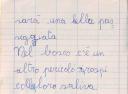 sarà una bella pas
seggiata
Nel bosco c'è un
altro pericolo
con la loro saliva